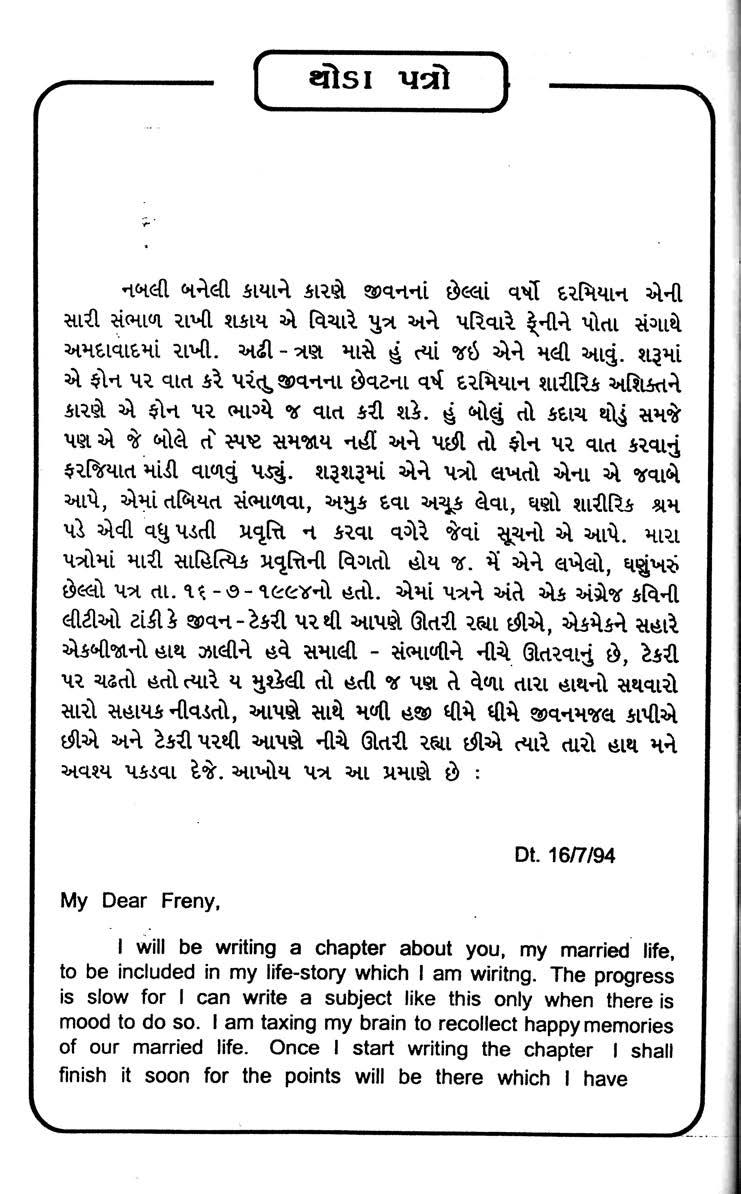 થોડા પત્રો
નબલી બનેલી કાયાને કારણે જીવનનાં છેલ્લાં વર્ષો દરમિયાન એની
સારી સંભાળ રાખી શકાય એ વિચારે પુત્ર અને પરિવારે ફ્રેનીને પોતા સંગાથે
અમદાવાદમાં રાખી. અઢી - ત્રણ માસે હું ત્યાં જઇ એને મલી આવું. શરૂમાં
એ ફોન પર વાત કરે પરંતુ જીવનના છેવટના વર્ષ દરમિયાન શારીરિક અશિક્તને
કારણે એ ફોન પર ભાગ્યે જ વાત કરી શકે. હું બોલું તો કદાચ થોડું સમજે
પણ એ જે બોલે તે સ્પષ્ટ સમજાય નહીં અને પછી તો ફોન પર વાત કરવાનું
ફરજિયાત માંડી વાળવું પડ્યું. શરૂશરૂમાં એને પત્રો લખતો એના એ જવાબે
આપે, એમાં તબિયત સંભાળવા, અમુક દવા અચૂક લેવા, ઘણો શારીરિક શ્રમ
પડે એવી વધુ પડતી પ્રવૃત્તિ ન કરવા વગેરે જેવાં સૂચનો એ આપે. મારા
પત્રોમાં મારી સાહિત્યિક પ્રવૃત્તિની વિગતો હોય જ. મેં એને લખેલો, ઘણુંખરું
છેલ્લો પત્ર તા. ૧૬ - ૭ - ૧૯૯૪નો હતો. એમાં પત્રને અંતે એક અંગ્રેજ કવિની
લીટીઓ ટાંકી કે જીવન - ટેકરી પર થી આપણે ઊતરી રહ્યા છીએ, એકમેકને સહારે
એકબીજાનો હાથ ઝાલીને હવે સમાલી - સંભાળીને નીચે ઊતરવાનું છે, ટેકરી
પર ચઢતો હતો ત્યારે ય મુશ્કેલી તો હતી જ પણ તે વેળા તારા હાથનો સથવારો
સારો સહાયક નીવડતો, આપણે સાથે મળી હજી ધીમે ધીમે જીવનમજલ કાપીએ
છીએ અને ટેકરી પરથી આપણે નીચે ઊતરી રહ્યા છીએ ત્યારે તારો હાથ મને
અવશ્ય પકડવા દેજે. આખોય પત્ર આ પ્રમાણે છે :
Dt. 16/7/94
My Dear Freny,
I will be writing a chapter about you, my married life,
to be included in my life-story which I am wiritng. The progress
is slow for I can write a subject like this only when there is
mood to do so. I am taxing my brain to recollect happy memories
of our married life. Once I start writing the chapter I shall
finish it soon for the points will be there which I have